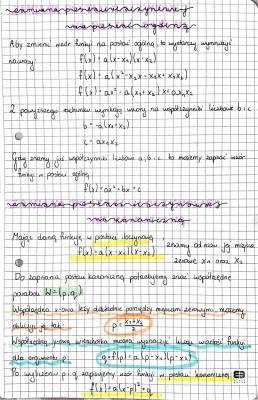 zamiana postaci iloczynowej
na postać ogólną
Aby zmienić wzór funkcji na postać ogólną, to wystarczy wymnożyć
nawiasy:
f(x) = a(x-x₁)(x-x₂)
f(x) = a(x²-x₂x-x₁x+x₁x₂)
f(x) = ax²-a(x₁+x₂)x+ax₁x₂
Z powyższego rachunku wynikają wzory na współczynniki liczbowe b i c
b = -a(x₁+x₂)
c = ax₁x₂
Gdy znamy już współczynniki liczbowe a, b i c to możemy zapisać wzór
funkcji w postaci ogólnej
f(x) = ax²+bx+c
zamiana postaci iloczynowej
na kanoniczną
Mając daną funkcję w postaci iloczynowej,
f(x) = a(x-x₁)(x-x₂)
znamy od razu jej miejsca
zerowe x₁ oraz x₂
Do zapisania postaci kanonicznej potrzebujemy znać współrzędne
paraboli W=(p,q)
Współrzędna x-owa leży dokładnie pomiędzy miejscami zerowymi, możemy
p = x₁+x₂
Współrzędną y-ową wierzchołka można wyznaczyć licząc wartość funkcji
dla argumentu p: q=f(p)=a(p-x₁)(p-x₂)
Po wyliczeniu p i q zapisujemy wzór funkcji w postaci kanonicznej
f(x)=a(x-p)²+q